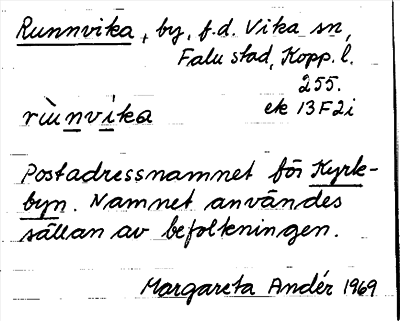 Runnvika, by, f.d. Vika sn,
Falu stad, Kopp. l.
255.
ek 13F2i
rùnvìka
Postadressnamnet för Kyrk-
byn. Namnet användes
sällan av befolkningen.
Margareta Andér 1969